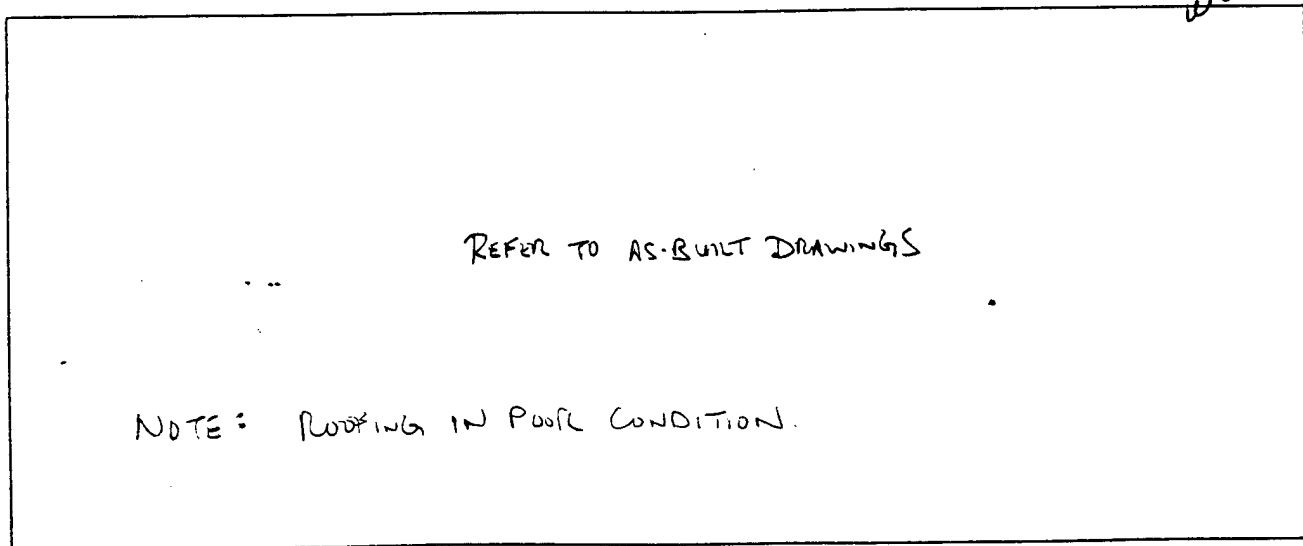 REFER TO AS-BUILT DRAWINGS
NOTE: ROOFING IN POOR CONDITION.